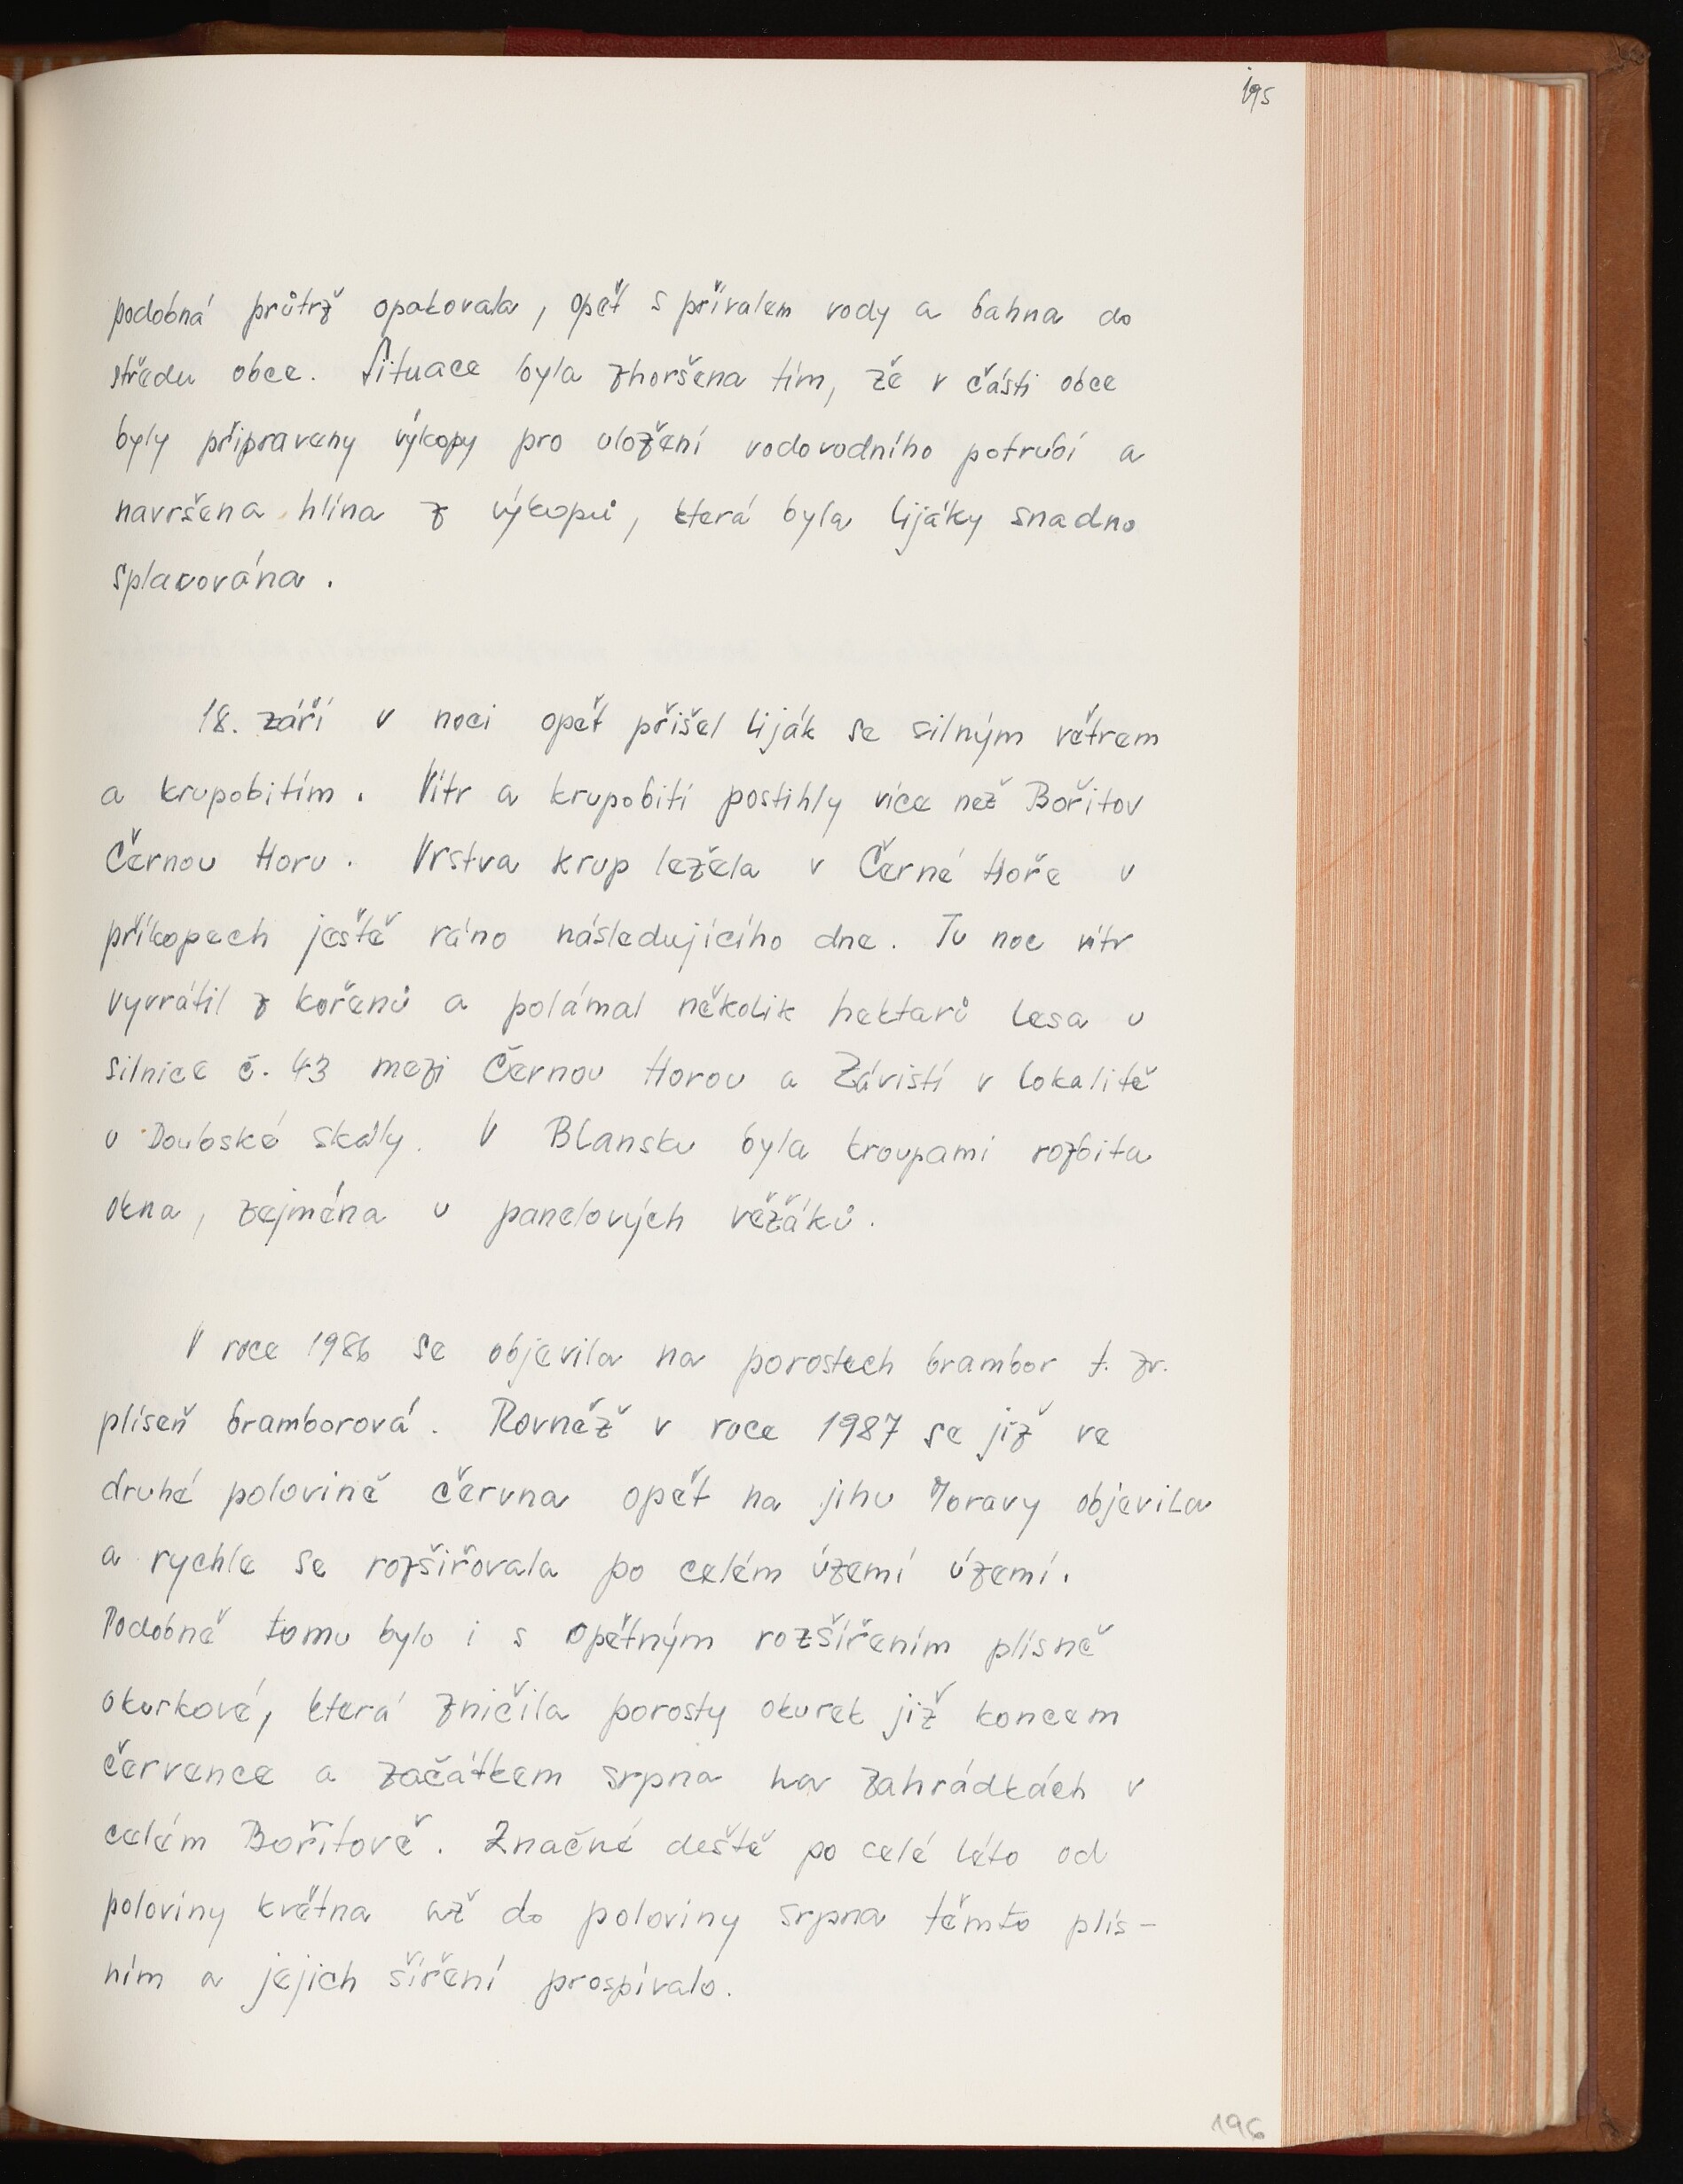 195
podobná průtrž opakovala, opět s přívalem vody a bahna do
středu obce. Situace byla zhoršena tím, že v části obce
byly připraveny výkopy pro uložení vodovodního potrubí a
navršena hlína z výkopů, která byla lijáky snadno
splavována.
18. září v noci opět přišel liják se silným větrem
a krupobitím. Vítr a krupobití postihly více než Bořitov
Černou Horu. Vrstva krup ležela v Černé Hoře v
příkopech ještě ráno následujícího dne. Tu noc vítr
vyvrátil z kořenů a polámal několik hektarů lesa u
silnice č. 43 mezi Černou Horou a Závistí v lokalitě
u Doubské skály. V Blansku byla kroupami rozbita
okna, zejména u panelových věžáků.
V roce 1986 se objevila na porostech brambor t. zv.
plíseň bramborová. Rovněž v roce 1987 se již ve
druhé polovině června opět na jihu Moravy objevila
a rychle se rozšiřovala po celém území území.
Podobně tomu bylo i s opětným rozšířením plísně
okurkové, která zničila porosty okurek již koncem
července a začátkem srpna na zahrádkách v
celém Bořitově. Značné deště po celé léto od
poloviny května až do poloviny srpna těmto plís-
ním a jejich šíření prospívalo.
196